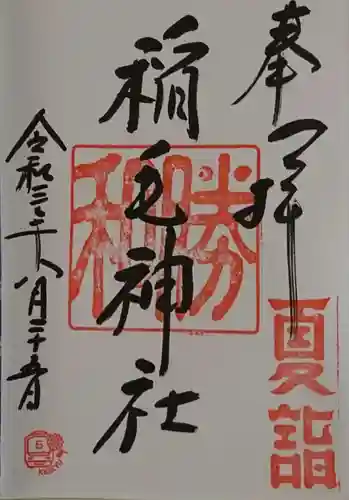 奉拝
稲毛神社
令和三年八月二十五日
勝
和
夏詣